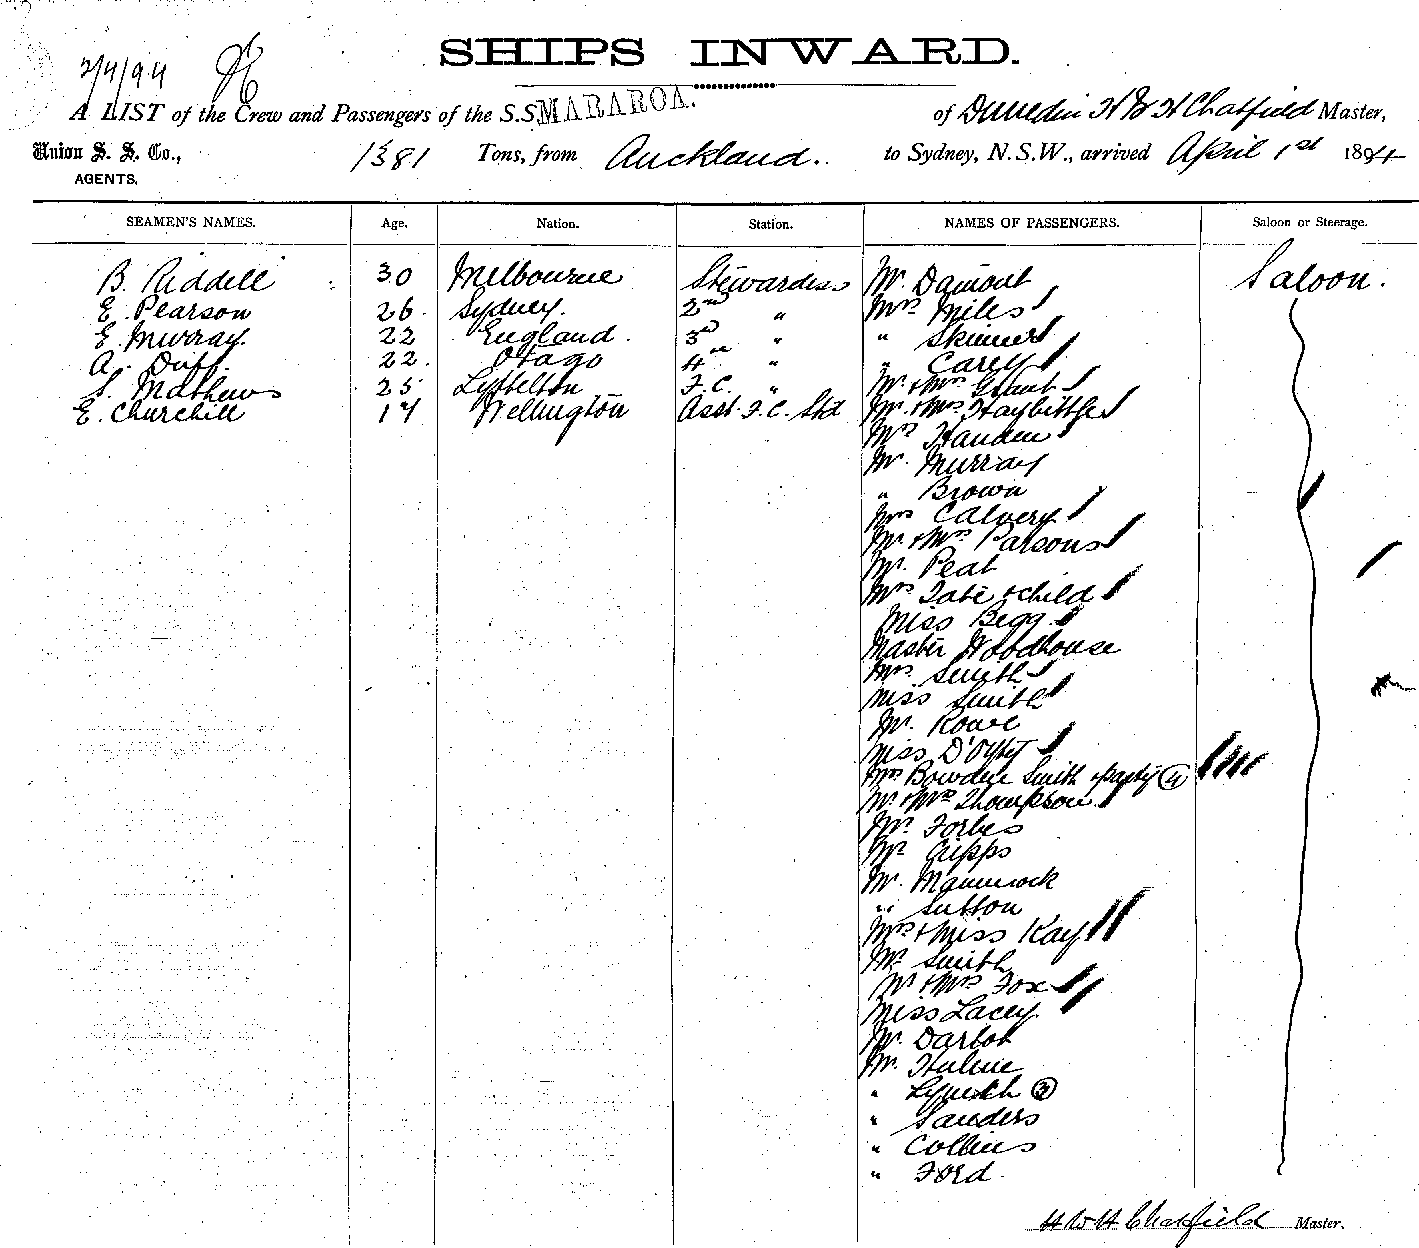 SHIPS INWARD.
2/4/94
A LIST of the Crew and Passengers of the S.S. MARAROA. of Dunedin H W H Chatfield Master,
Union S. S. Co., 1381 Tons, from Auckland. to Sydney, N.S.W., arrived April 1st 1894
AGENTS.
SEAMEN'S NAMES. Age. Nation. Station. NAMES OF PASSENGERS. Saloon or Steerage.
B. Riddell 30 Melbourne Stewardess Mr. Damont Saloon.
E. Pearson 26. Sydney. 2nd " Mrs Miles
E. Murray. 22 England. 3rd " " Skinner
A. Duff. 22. Otago 4th " " Carey
S. Mathews 25 Lyttelton F.C. " Mr. & Mrs Grant
E. Churchill 17 Wellington Asst. F.C. Std Mr. & Mrs Haybittle
Mrs
Mr. Murray
" Brown
Mrs Calvery
Mr. & Mrs Parsons
Mr. Peat
Mrs Tate & child
Miss Begg.
Master Woodhouse
Mrs Smith
Miss Smith
Mr. Rowe
Miss D'Oyly
Mrs Bowden Smith & party (4)
Mr & Mrs Thompson
Mr. Forbes
Mr. Cripps
Mr. Mammock
" Sutton
Mrs & Miss Kay
Mr. Smith
Mr & Mrs Fox
Miss Lacey
Mr. Darbot
Mr. Hulme
" Lynch (2)
" Sanders
" Collins
" Ford.
H W H Chatfield Master.